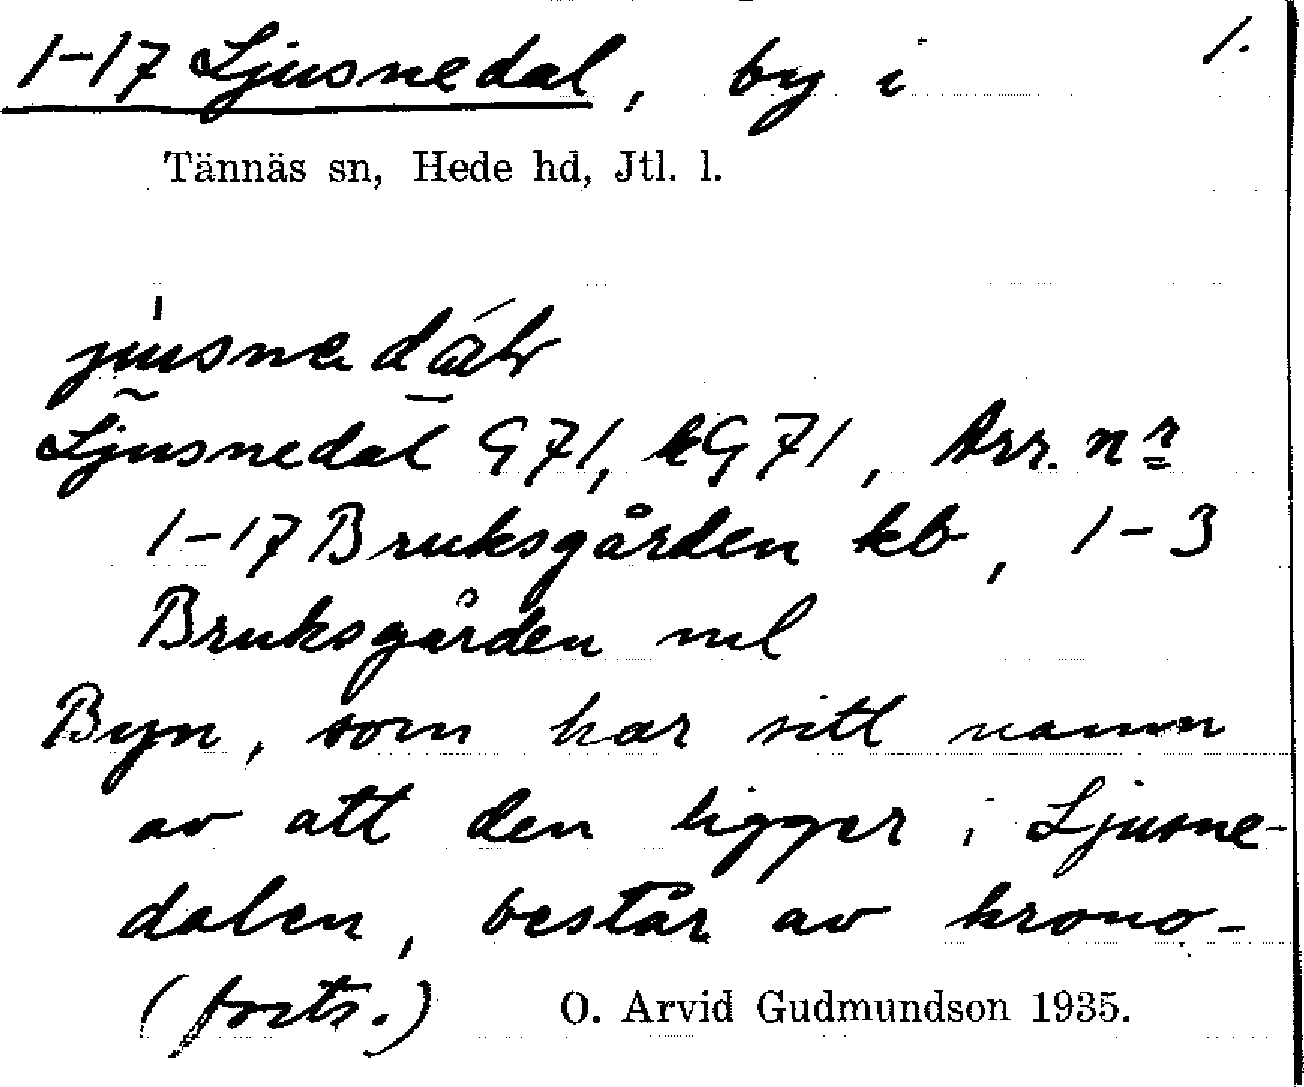 1-17 Ljusnedal, by i 1.
Tännäs sn, Hede hd, Jtl. l.
Ljusnedal G71, kG71, Arr. nr
1-17 Bruksgården kb, 1-3
Bruksgården ml
Byn, som har sitt namn
av att den ligger i Ljusne-
dalen, består av krono-
(forts.) O. Arvid Gudmundson 1935.